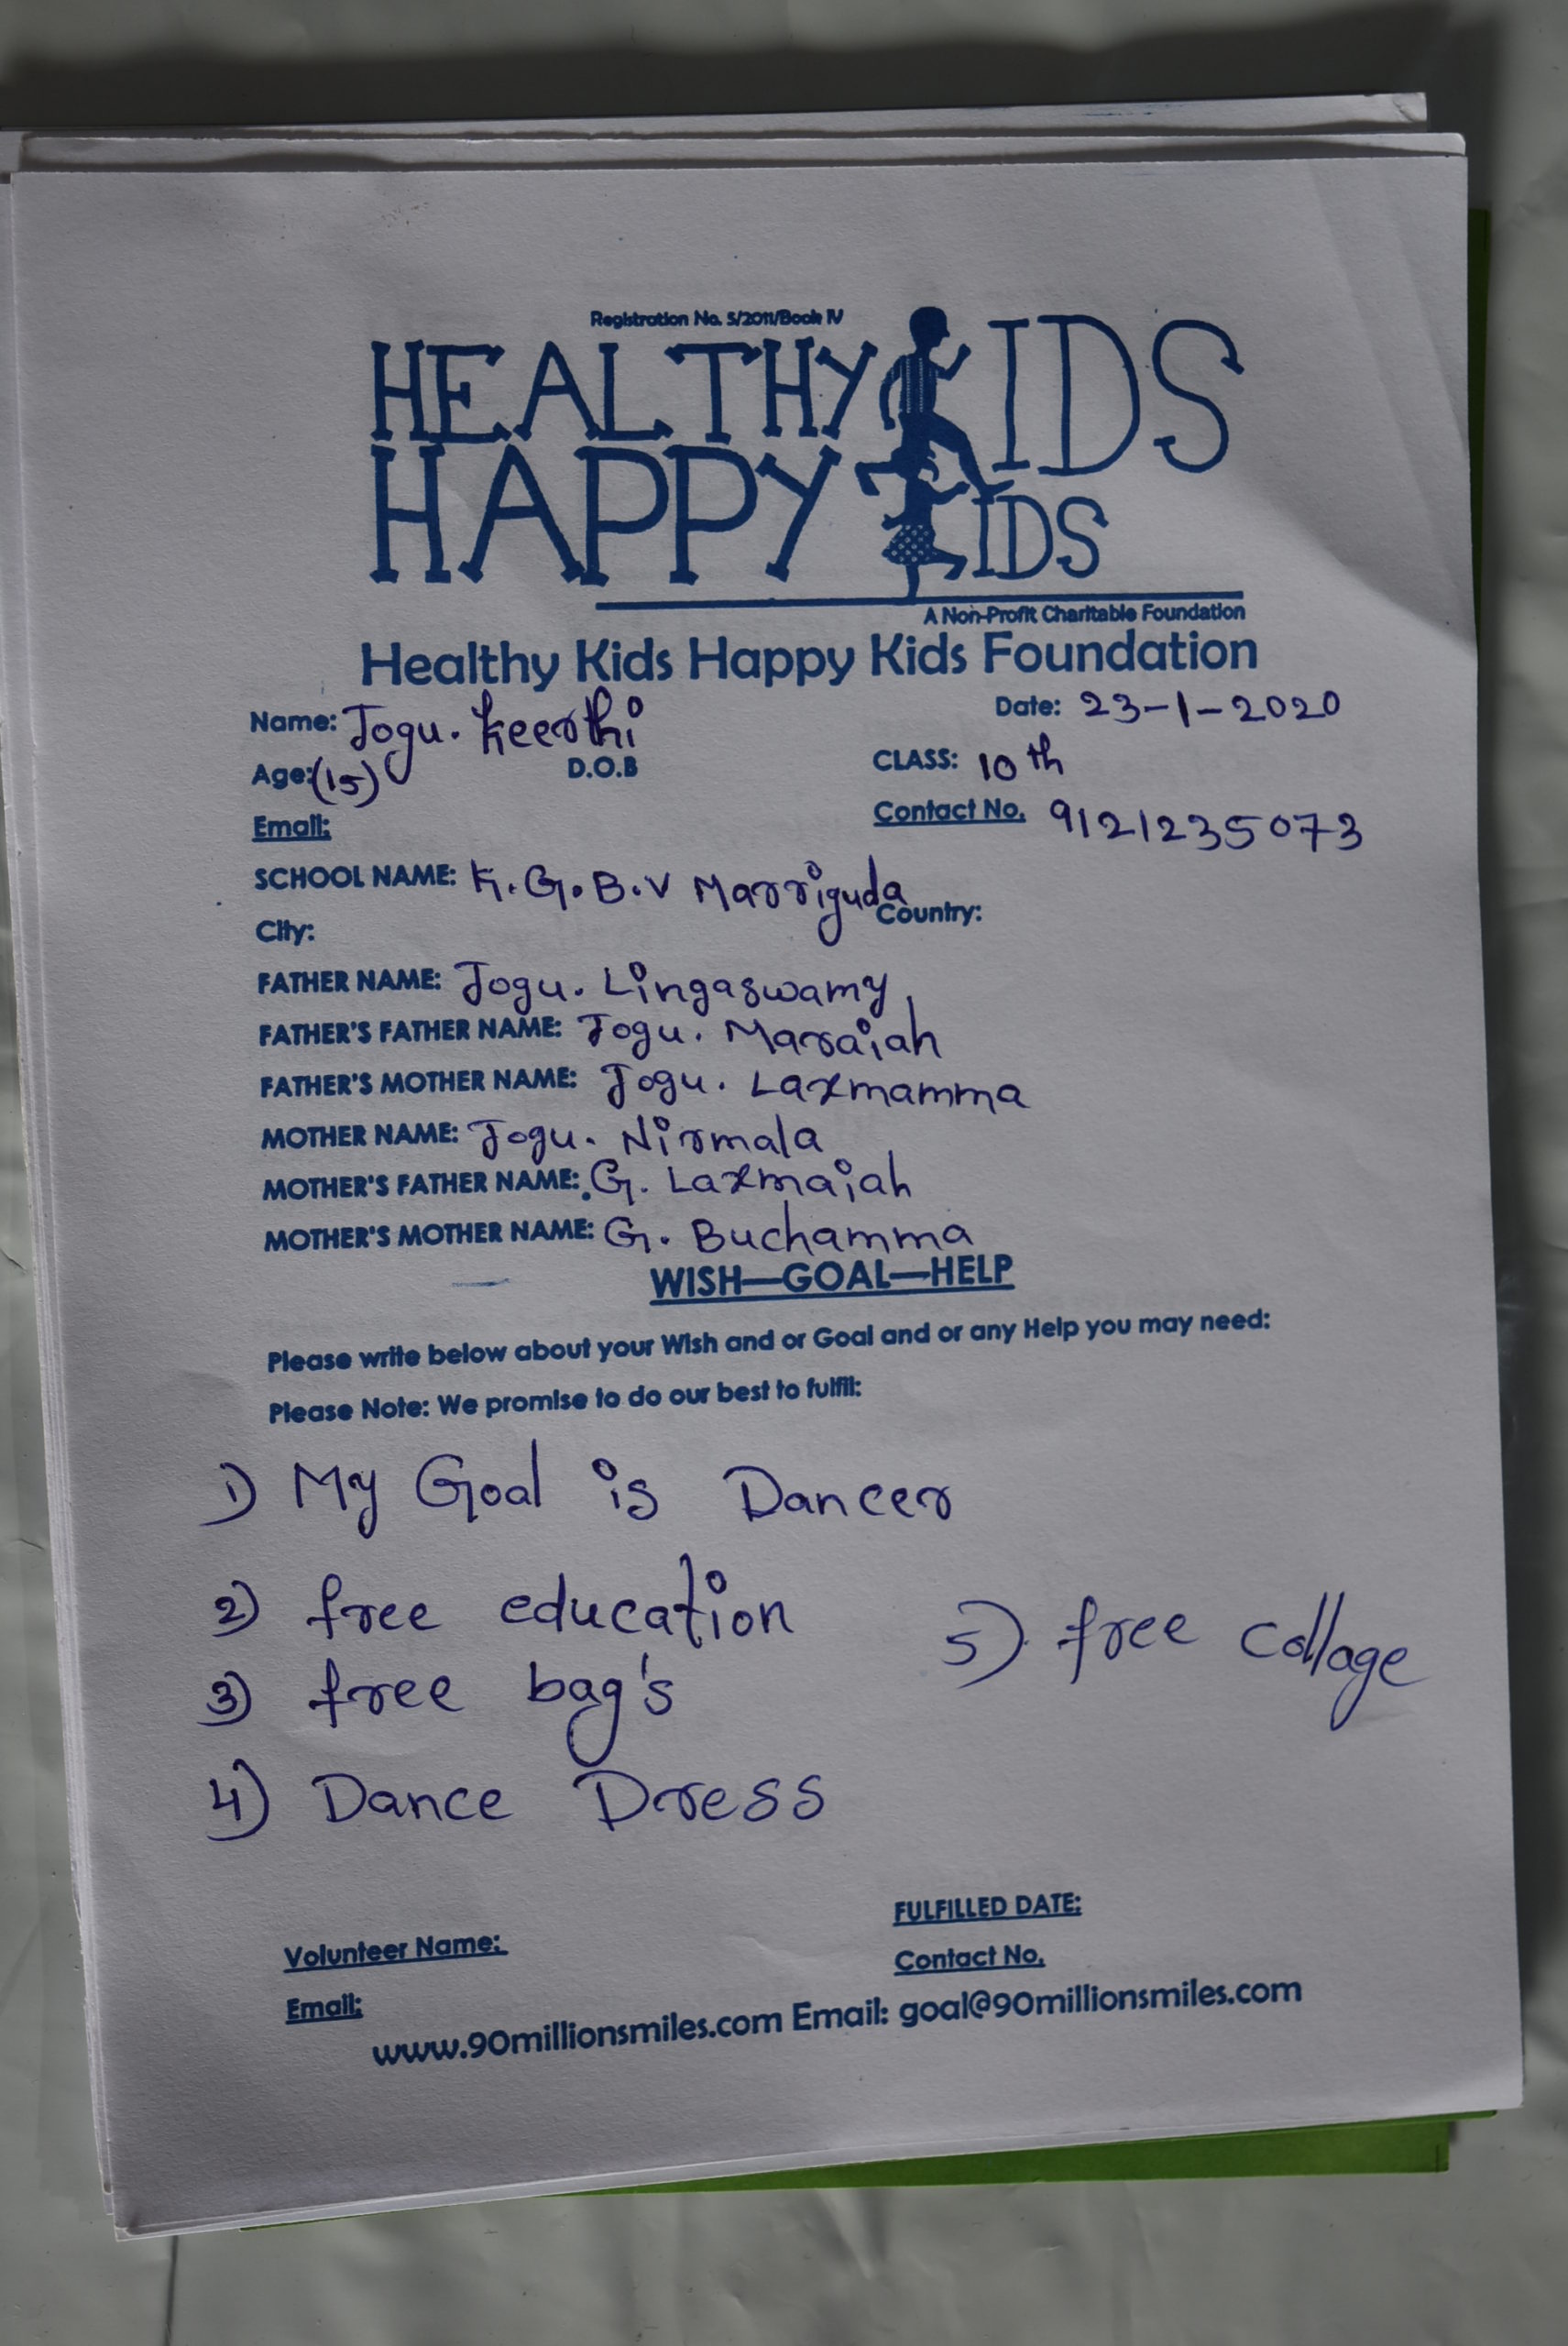 Registration No. 5/2011/Book IV
HEALTHY KIDS
HAPPY KIDS
A Non-Profit Charitable Foundation
Healthy Kids Happy Kids Foundation
Name: Jogu. Keerthi Date: 23-1-2020
Age: (15) D.O.B CLASS: 10th
Email: Contact No. 9121235073
SCHOOL NAME: K.G.B.V Marriguda
City: Country:
FATHER NAME: Jogu. Lingaswamy
FATHER'S FATHER NAME: Jogu. Maraiah
FATHER'S MOTHER NAME: Jogu. Laxmamma
MOTHER NAME: Jogu. Nirmala
MOTHER'S FATHER NAME: G. Laxmaiah
MOTHER'S MOTHER NAME: G. Buchamma
WISH—GOAL—HELP
Please write below about your Wish and or Goal and or any Help you may need:
Please Note: We promise to do our best to fulfil:
1) My Goal is Dancer
2) free education
3) free bag's
4) Dance Dress
5) free collage
FULFILLED DATE:
Volunteer Name: Contact No.
Email:
www.90millionsmiles.com Email: goal@90millionsmiles.com